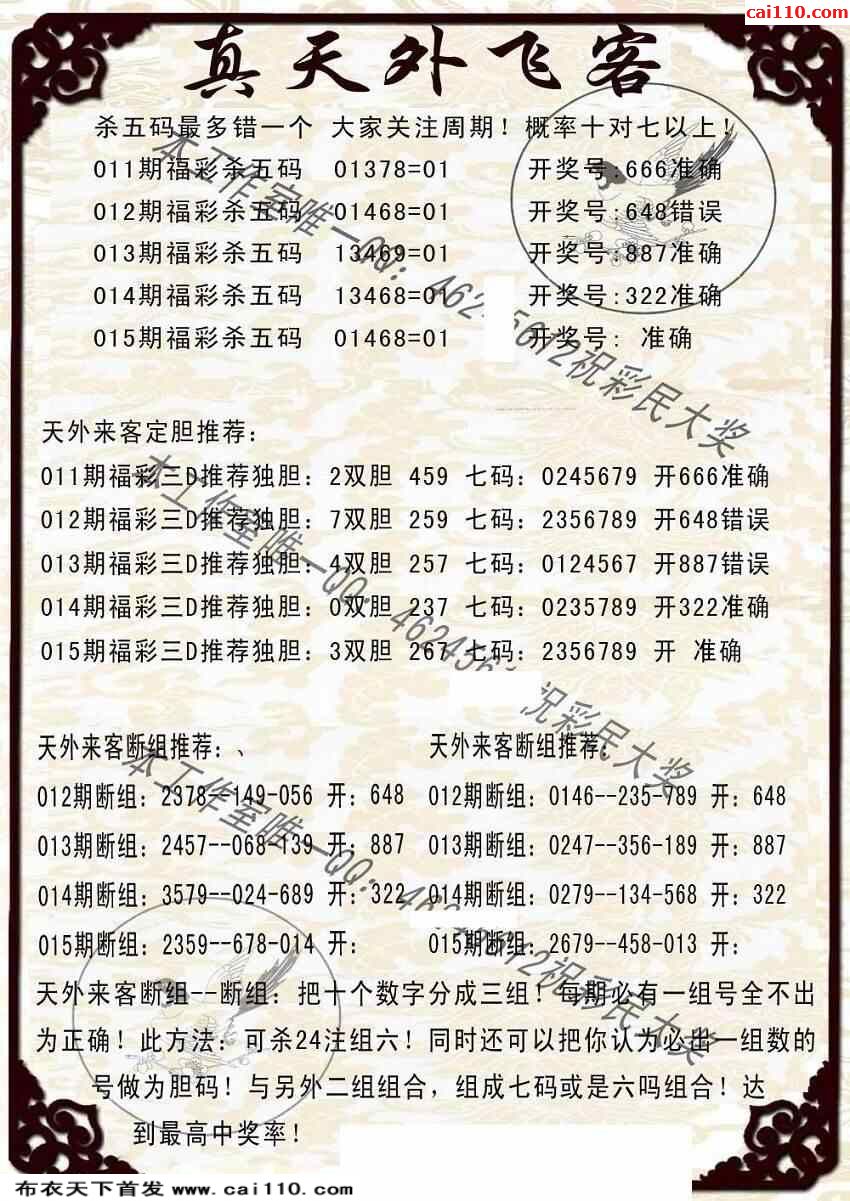 cai110.com
真天外飞客
杀五码最多错一个 大家关注周期！概率十对七以上！
011期福彩杀五码 01378=01 开奖号:666准确
012期福彩杀五码 01468=01 开奖号:648错误
013期福彩杀五码 13469=01 开奖号:887准确
014期福彩杀五码 13468=01 开奖号:322准确
015期福彩杀五码 01468=01 开奖号: 准确
天外来客定胆推荐：
011期福彩三D推荐独胆：2双胆 459 七码：0245679 开666准确
012期福彩三D推荐独胆：7双胆 259 七码：2356789 开648错误
013期福彩三D推荐独胆：4双胆 257 七码：0124567 开887错误
014期福彩三D推荐独胆：0双胆 237 七码：0235789 开322准确
015期福彩三D推荐独胆：3双胆 267 七码：2356789 开 准确
天外来客断组推荐：、
012期断组：2378--149-056 开：648
013期断组：2457--068-139 开：887
014期断组：3579--024-689 开：322
015期断组：2359--678-014 开：
天外来客断组推荐：
012期断组：0146--235-789 开：648
013期断组：0247--356-189 开：887
014期断组：0279--134-568 开：322
015期断组：2679--458-013 开：
天外来客断组--断组：把十个数字分成三组！每期必有一组号全不出
为正确！此方法：可杀24注组六！同时还可以把你认为必出一组数的
号做为胆码！与另外二组组合，组成七码或是六吗组合！达
到最高中奖率！
本工作室唯一QQ：462 5612祝彩民大奖
本工作室唯一QQ：462456 祝彩民大奖
本工作室唯一QQ：46 5612祝彩民大奖
布衣天下首发 www.cai110.com